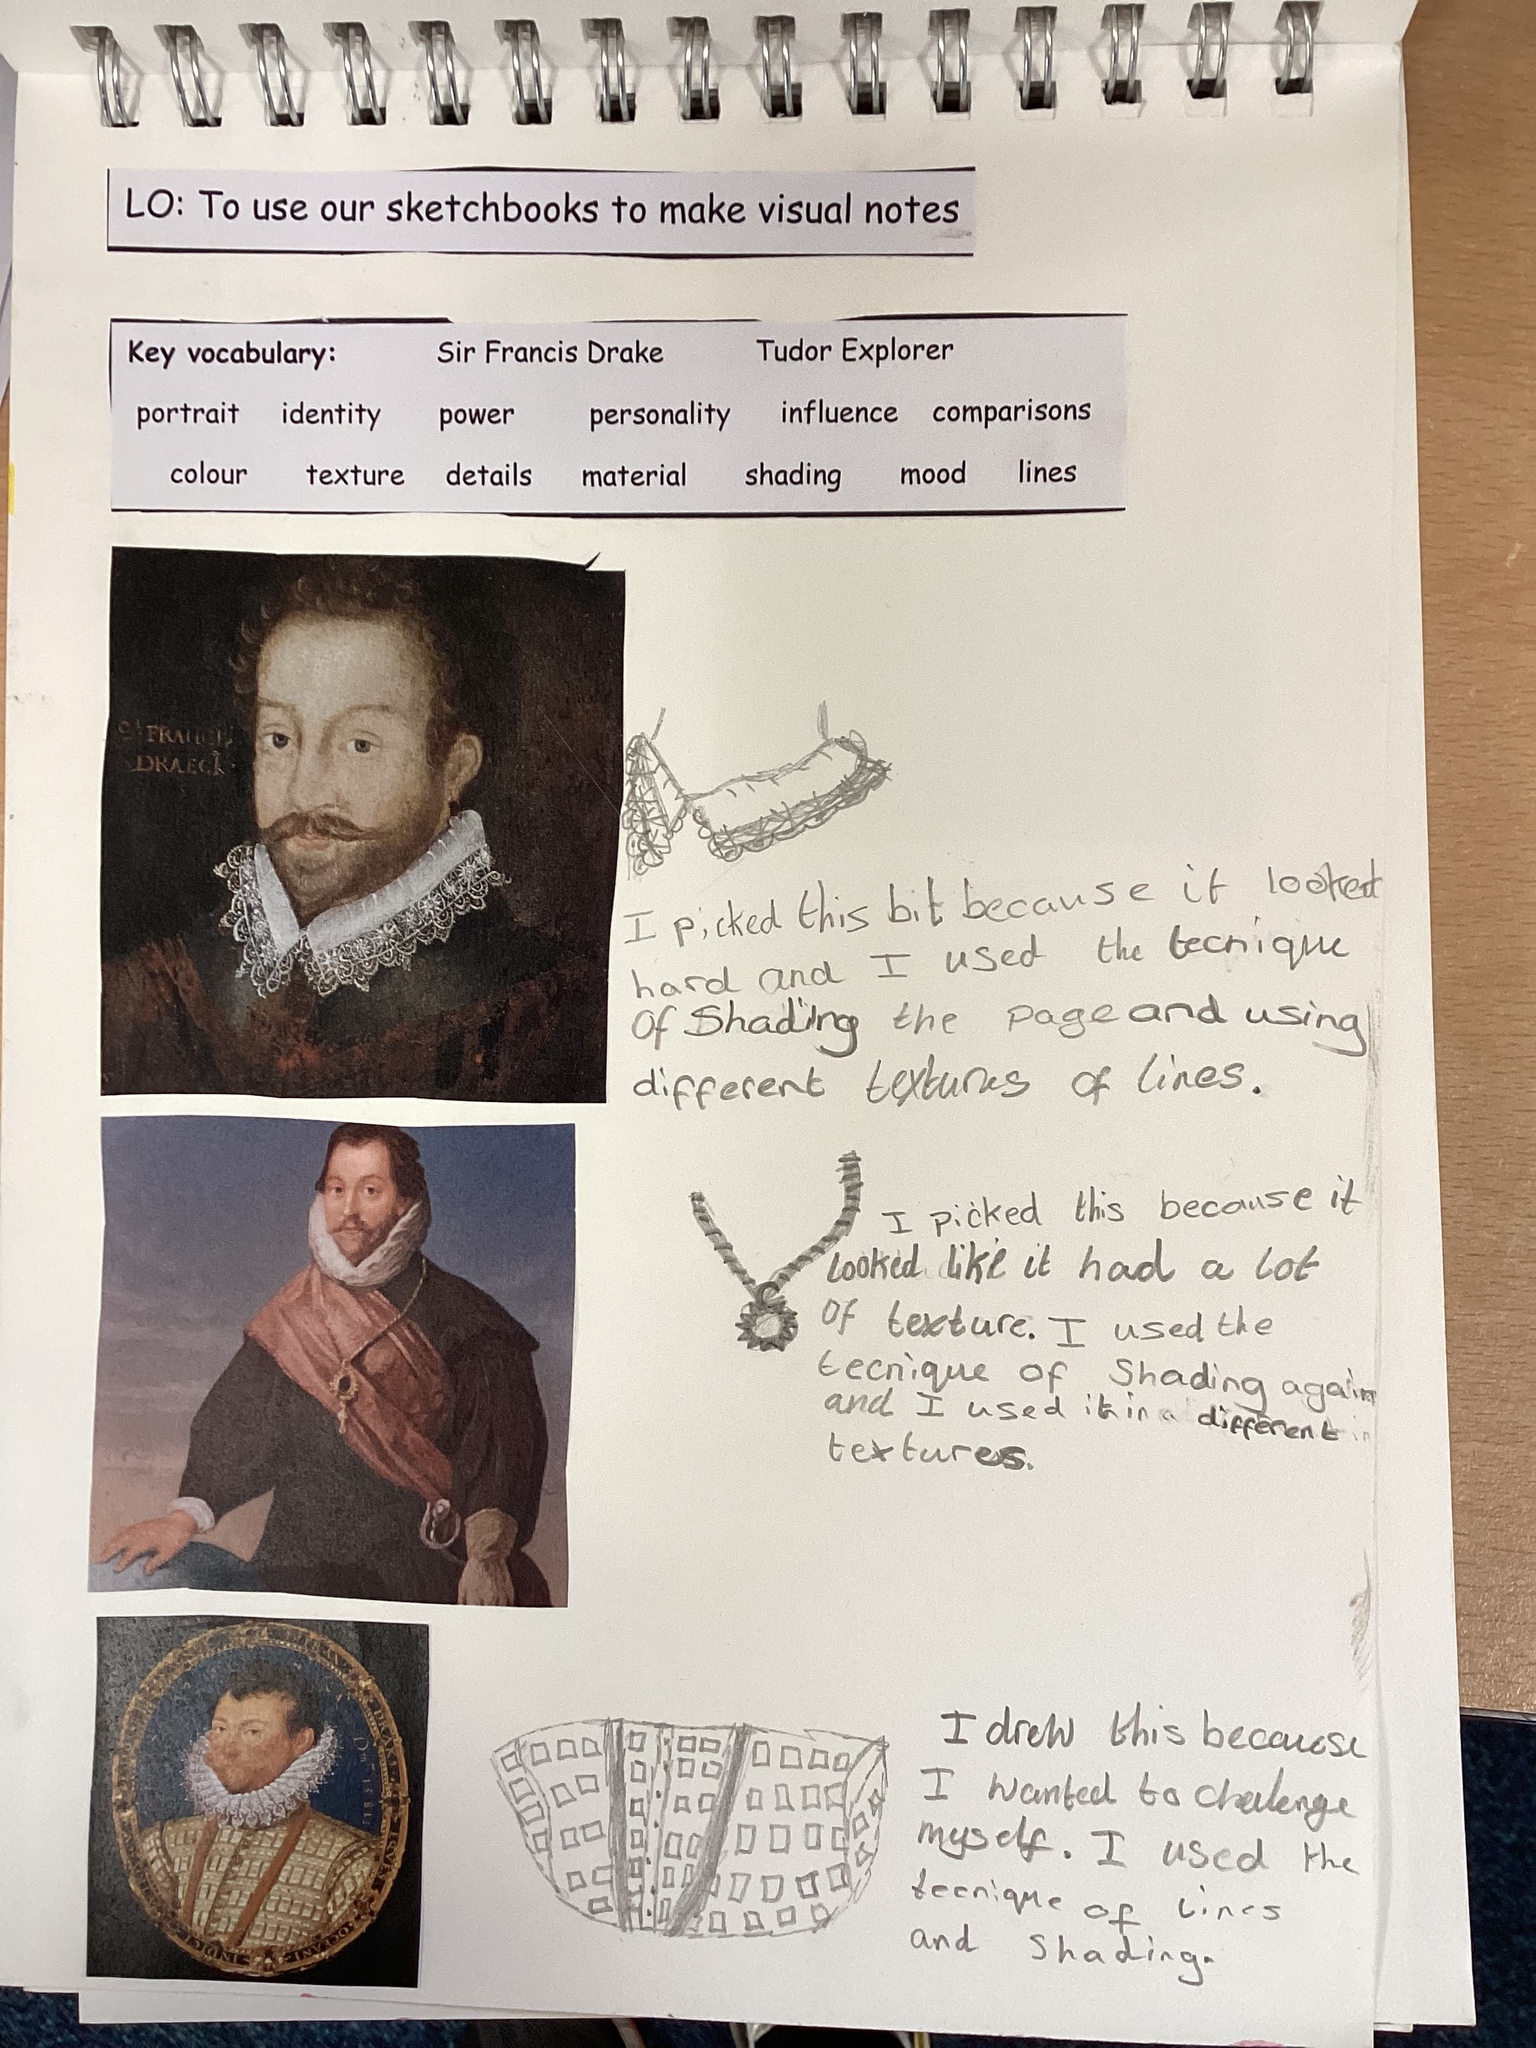 LO: To use our sketchbooks to make visual notes
Key vocabulary: Sir Francis Drake Tudor Explorer
portrait identity power personality influence comparisons
colour texture details material shading mood lines
FRANCIS
DRAECK
I picked this bit because it looked
hard and I used the tecnique
Of Shading the page and using
different textures of lines.
I picked this because it
looked like it had a lot
Of texture. I used the
tecnique of Shading again
and I used it in a different
textures.
I drew this because
I wanted to chalenge
myself. I used the
tecnique of lines
and Shading.